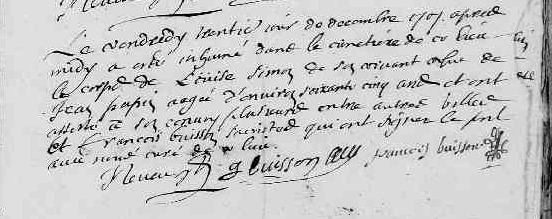 Le vendredy trentie jour de decembre 1707 apres
midy a esté inhumé dans le cimetière de ce lieu
le corps de Louise Simon de son vivant vefve de
Jean papin aagée d'environ soixante cinq ans et ont
assisté a son convoy plusieurs entre autres
et François buisson sacristed qui ont signer le pnt
avec nous curé de ce lieu
g buisson françois buisson